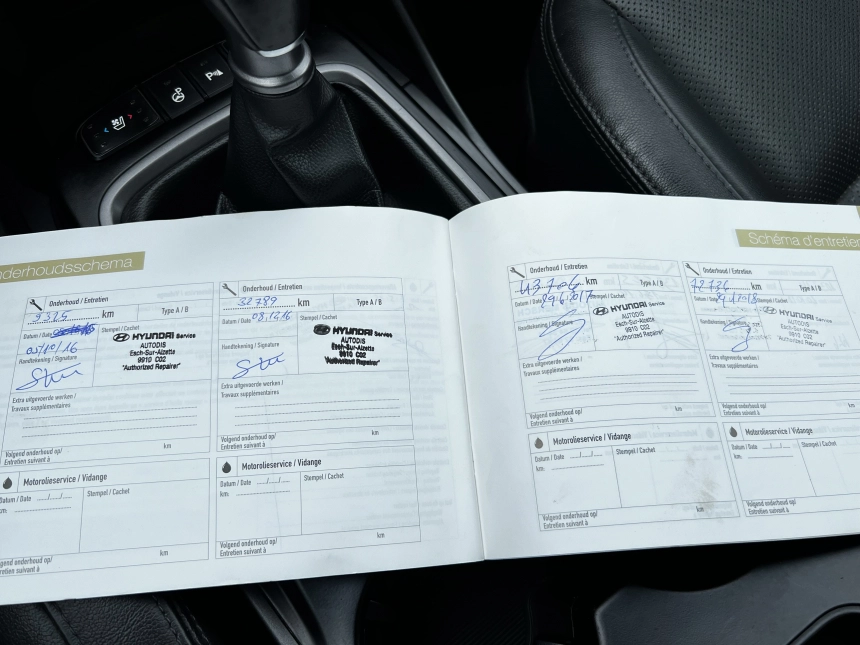 nderhoudsschema
Onderhoud / Entretien
km
Type A / B
Datum / Date
03/10/16
Stempel / Cachet
HYUNDAI Service
AUTODIS
Esch-Sur-Alzette
9910 C02
"Authorized Repairer"
Handtekening / Signature
Extra uitgevoerde werken /
Travaux supplémentaires
Volgend onderhoud op/
Entretien suivant à
km
Motorolieservice / Vidange
Datum / Date .../.../...
km:
Stempel / Cachet
Volgend onderhoud op/
Entretien suivant à
km
Onderhoud / Entretien
32789 km
Type A / B
Datum / Date 08.12.16
Stempel / Cachet
HYUNDAI Service
AUTODIS
Esch-Sur-Alzette
9910 C02
"Authorized Repairer"
Handtekening / Signature
Extra uitgevoerde werken /
Travaux supplémentaires
Volgend onderhoud op/
Entretien suivant à
km
Motorolieservice / Vidange
Datum / Date .../.../...
km:
Stempel / Cachet
Volgend onderhoud op/
Entretien suivant à
km
Schéma d'entretien
Onderhoud / Entretien
43.706 km
Type A / B
Datum / Date 29.6.2017
HYUNDAI Service
AUTODIS
Esch-Sur-Alzette
9910 C02
"Authorized Repairer"
Handtekening / Signature
Extra uitgevoerde werken /
Travaux supplémentaires
Volgend onderhoud op/
Entretien suivant à
km
Motorolieservice / Vidange
Datum / Date .../.../...
km:
Stempel / Cachet
Volgend onderhoud op/
Entretien suivant à
km
Onderhoud / Entretien
km
Type A / B
HYUNDAI Service
AUTODIS
Esch-Sur-Alzette
9910 C02
"Authorized Repairer"
Handtekening / Signature
Extra uitgevoerde werken /
Travaux supplémentaires
Volgend onderhoud op/
Entretien suivant à
km
Motorolieservice / Vidange
Datum / Date .../.../...
km:
Stempel / Cachet
Volgend onderhoud op/
Entretien suivant à